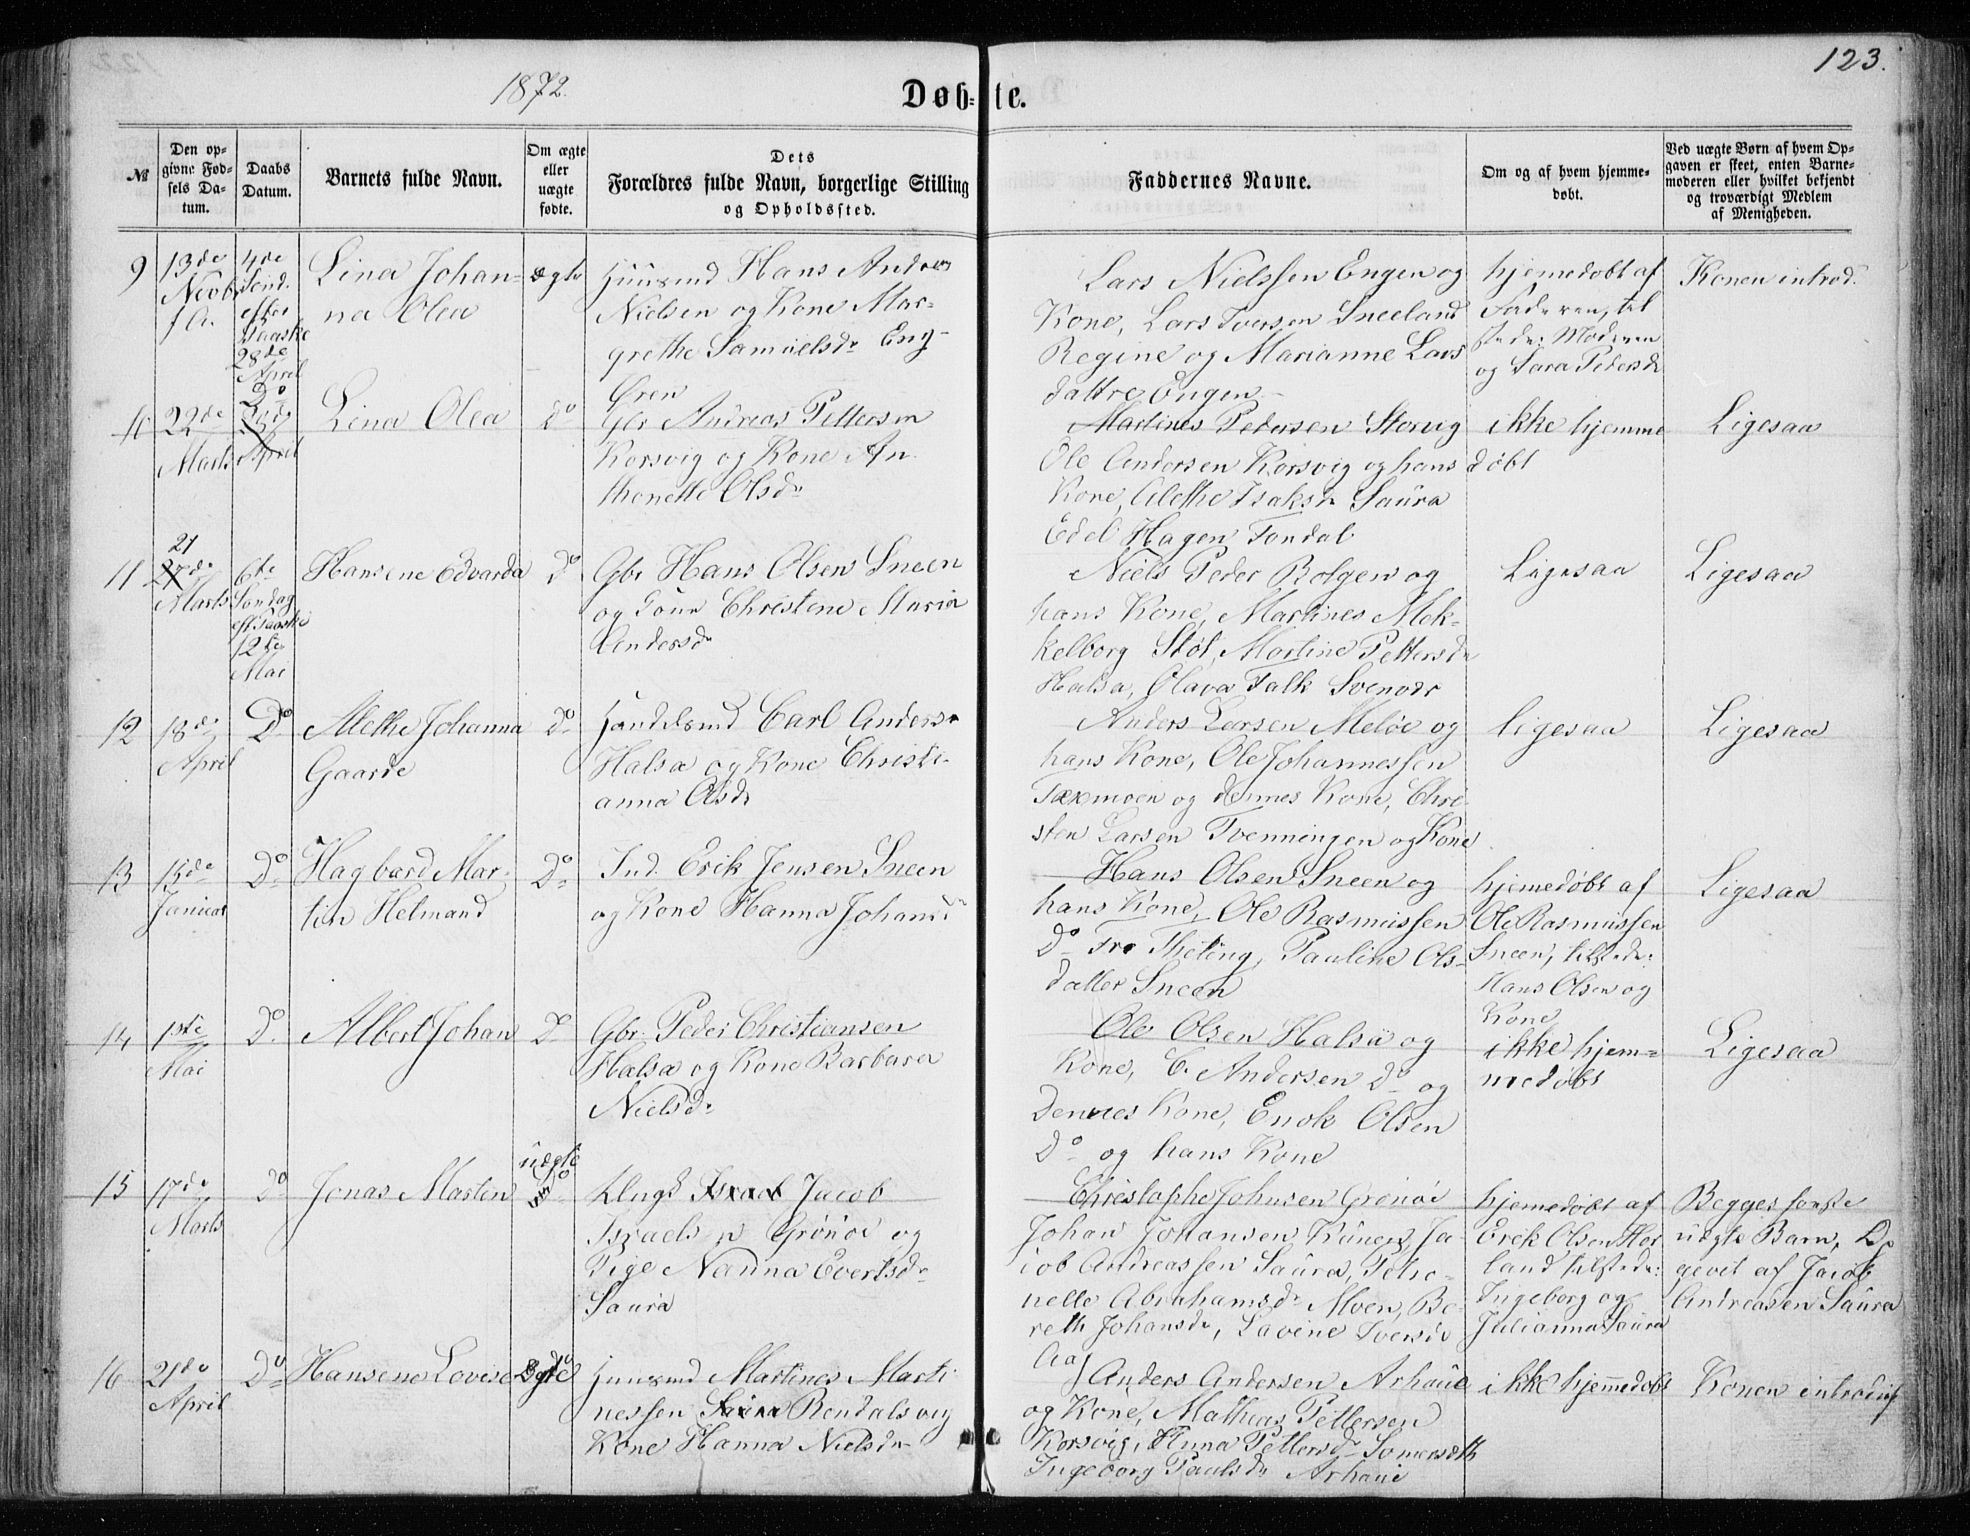 123.
1872.
Døb-te.
№
Den op-
givne Fød-
sels Da-
tum.
Daabs
Datum.
Barnets fulde Navn.
Om ægte
eller
uægte
fødte.
Dets
Forældres fulde Navn, borgerlige Stilling
og Opholdssted.
Faddernes Navne.
Om og af hvem hjemme-
døbt.
Ved uægte Børn af hvem Op-
gaven er skeet, enten Barne-
moderen eller hvilket bekjendt
og troværdigt Medlem
af Menigheden.
9
13de
Novbr
f A.
4de
Sønd.
efter
Paaske
28de
April
Lina Johan-
na Olea
ægte
Huusmd Hans Andreas
Nielsen og Kone Mar-
grethe Samuelsdr Eng-
Øren
Lars Nielssen Engen og
Kone, Lars Iversen Sneeland
Regine og Marianne Lars
dattre Engen
hjemedøbt af
Faderen, til
stede: Moderen
og Sara Pedersdr
Konen introd.
10
22de
Marts
Do
28de
April
Lina Olea
do
Gbr Andreas Pettersen
Korsvig og Kone An
thonette Olsdr
Martines Pedersen Storvig
Ole Andersen Korsvig og hans
Kone, Alethe Isaksdr Saura
Edel Hagen Tondal
ikke hjemme
døbt
Ligesaa
11
21
27de
Marts
6te
Søndag
eft. Paaske
12te
Mai
Hansine Edvarda
Do
Gbr Hans Olsen Sneen
og Kone Christene Maria
Andersdr
Niels Peder Bolgen og
hans Kone, Martines Mek-
kelborg Støt, Martine Pettersdr
Halsa, Olava Falk Svenodr
Ligesaa
Ligesaa
12
18de
April
Do
Alethe Johanna
Gaarde
Do
Handelsmd Carl Andersn
Halsa og Kone Christi-
anna Olsdr
Anders Larsen Meløe og
hans Kone, Ole Johannessen
Texmoen og dennes Kone, Chri-
sten Larsen Tvenningen og Kone
Ligesaa
Ligesaa
13
15de
Januar
Do
Hagbard Mar-
tin Helmand
Do
Ind. Erik Jensen Sneen
og Kone Hanna Johansdr
Hans Olsen Sneen og
hans Kone, Ole Rasmussen
Do Fro Theting, Pauline Ols-
datter Sneen
hjemedøbt af
Ole Rasmussen
Sneen, tilstede:
Hans Olsen og
Kone
Ligesaa
14
1ste
Mai
Do
Albert Johan
Do
Gbr. Peder Christiansen
Halsa og Kone Barbara
Nielsdr
Ole Olsen Halsa og
Kone, C. Andersen Do og
Dennes Kone, Enok Olsen
Do og hans Kone
ikke hjem=
medøbt
Ligesaa
15
17de
Marts
Do
Jonas Martin
uægte
Do
Ungk Israel Jacob
Israelsen Grönöe og
Pige Nanna Evertsdr
Saura
Christophe Johnsen Grönöe
Johan Johansen Kunens, Ja-
cob Andreassen Saura, Pelro-
nelle Abrahamsdr Alven, Be-
reth Johansdr, Lavine Iversdr
Aag
hjemedøbt af
Erik Olsen Hor
land tilstede:
Ingeborg og
Julianna Saura
Begges første
uægte Barn, Op
gevet af Jacob
Andreasen Saura
16
21de
April
Do
Hansine Lovise
Ægte
Huusmd Martines Marti
nessen Saura Rendalsvig
Kone Hanna Nielsdr
Anders Andersen Arhaug
og Kone, Mathias Pettersen
Korsvig, Anna Pettersdr Somerseth
Ingeborg Paulsdr Arhaug
ikke hjemmedøbt
Konen introduc